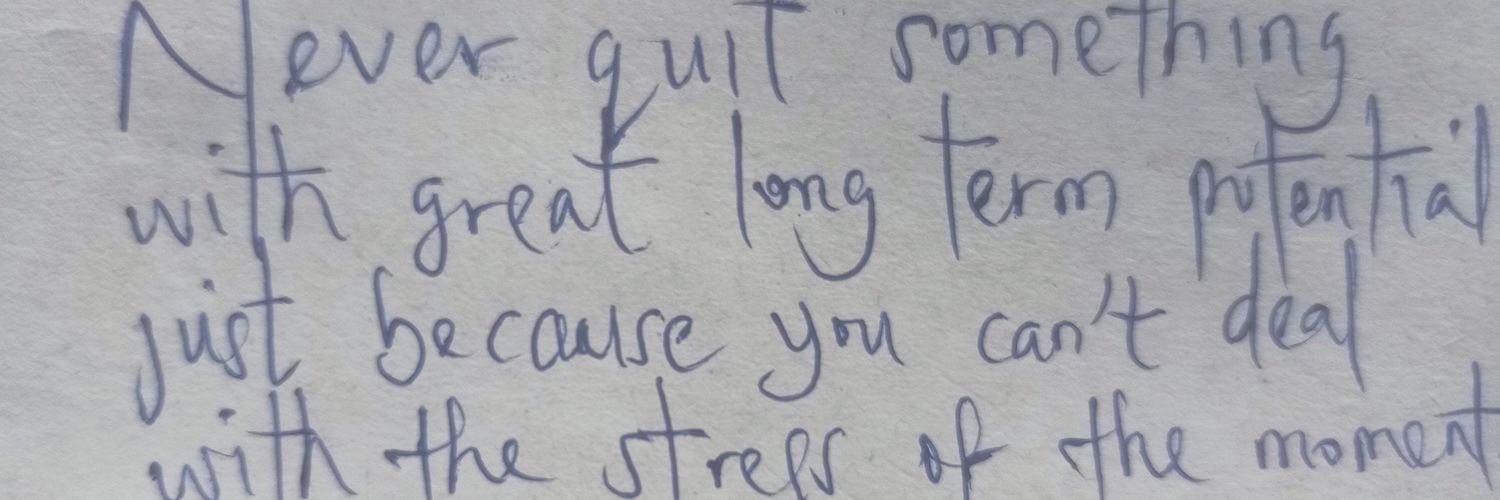 Never quit something
with great long term potential
just because you can't deal
with the stress of the moment.